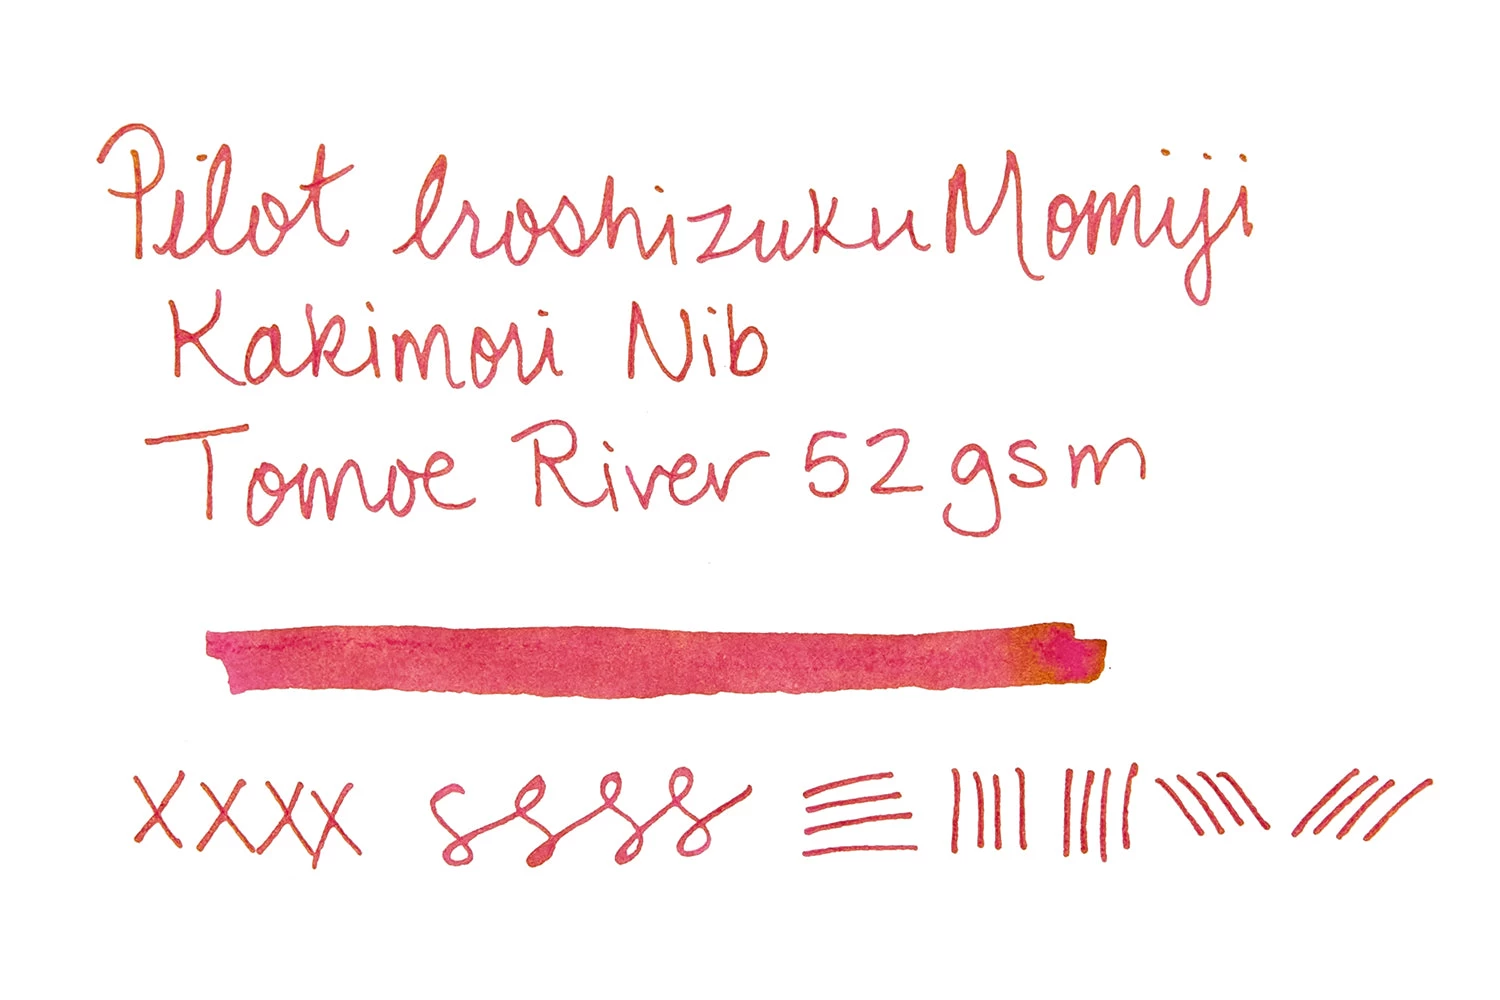 Pilot Iroshizuku Momiji
Kakimori Nib
Tomoe River 52 gsm
XXXX